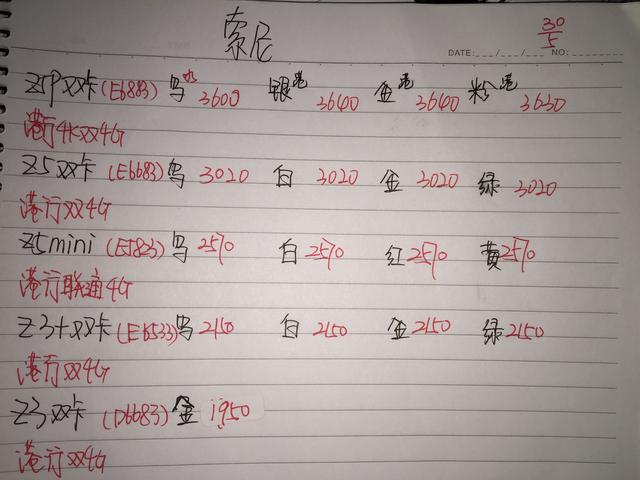 索尼
30/5
DATE: ___/___/___ NO:
Z5P双卡(E6883) 乌水3600 银港3640 金港3640 粉港3630
港行4K双4G
Z5双卡(E6683) 乌3020 白3020 金3020 绿3020
港行双4G
Z5mini(E5823) 乌2570 白2570 红2570 黄2570
港行联通4G
Z3+双卡(E6533) 乌2150 白2150 金2150 绿2150
港行双4G
Z3双卡(D6683) 金1950
港行双4G